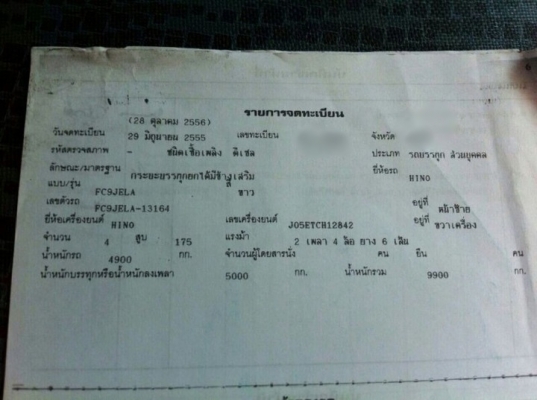 รายการจดทะเบียน
(28 ตุลาคม 2556)
วันจดทะเบียน 29 มิถุนายน 2555 เลขทะเบียน จังหวัด
รหัสตรวจสภาพ - ชนิดเชื้อเพลิง ดีเซล ประเภท รถบรรทุก ส่วนบุคคล
ลักษณะ/มาตรฐาน กระบะบรรทุกยกได้มีข้างเสริม ยี่ห้อรถ HINO
แบบ/รุ่น FC9JELA สี ขาว
เลขตัวรถ FC9JELA-13164 อยู่ที่ หน้าซ้าย
ยี่ห้อเครื่องยนต์ HINO เลขเครื่องยนต์ J05ETCH12842 อยู่ที่ ขวาเครื่อง
จำนวน 4 สูบ 175 แรงม้า 2 เพลา 4 ล้อ ยาง 6 เส้น
น้ำหนักรถ 4900 กก. จำนวนผู้โดยสารนั่ง คน ยืน คน
น้ำหนักบรรทุกหรือน้ำหนักลงเพลา 5000 กก. น้ำหนักรวม 9900 กก.